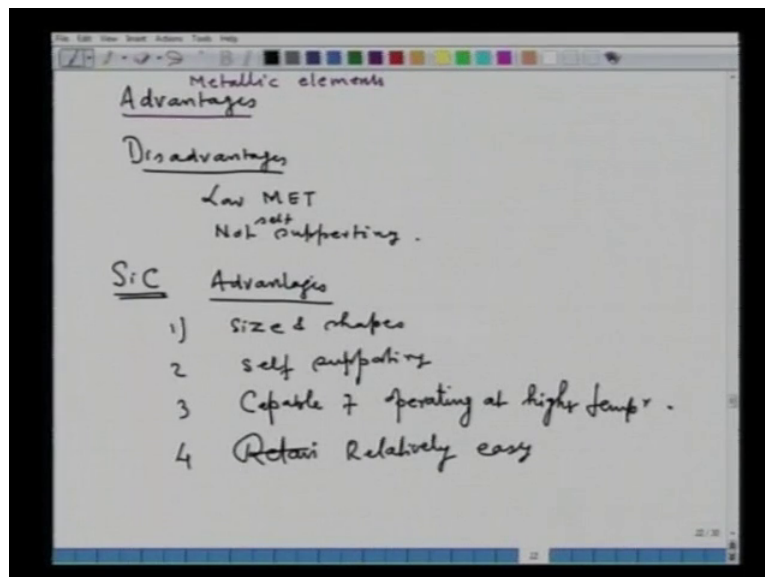 File Edit View Insert Actions Tools Help
Metallic elements
Advantages
Disadvantages
Low MET
Not self supporting.
SiC Advantages
1) size & shapes
2 self supporting
3 Capable of operating at high temp.
4 Retain Relatively easy
22